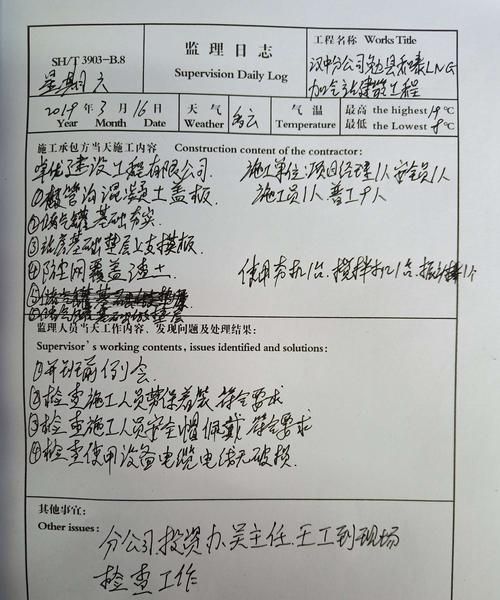 SH/T 3903-B.8
星期六
监理日志
Supervision Daily Log
工程名称 Works Title
汉中分公司勉县和臻LNG
加气站建筑工程
2019年 3月 16日
Year Month Date
天气
Weather
多云
气温
Temperature
最高 the highest 19℃
最低 the Lowest 8℃
施工承包方当天施工内容 Construction content of the contractor:
建设工程有限公司. 施工单位:项目经理1人安全员1人
①相管沟混凝土盖板. 施工员1人 普工7人
②储气罐基础夯实.
③站房基础垫层上支模板.
④防尘网覆盖渣土. 使用夯机1台.搅拌机1台.振动棒1个
监理人员当天工作内容、发现问题及处理结果:
Supervisor's working contents, issues identified and solutions:
①开班前例会.
②检查施工人员劳保着装.符合要求
③检查施工人员安全帽佩戴 符合要求
④检查使用设备电缆电线无破损.
其他事宜:
Other issues:
分公司投资办吴主任.王工到现场
检查工作